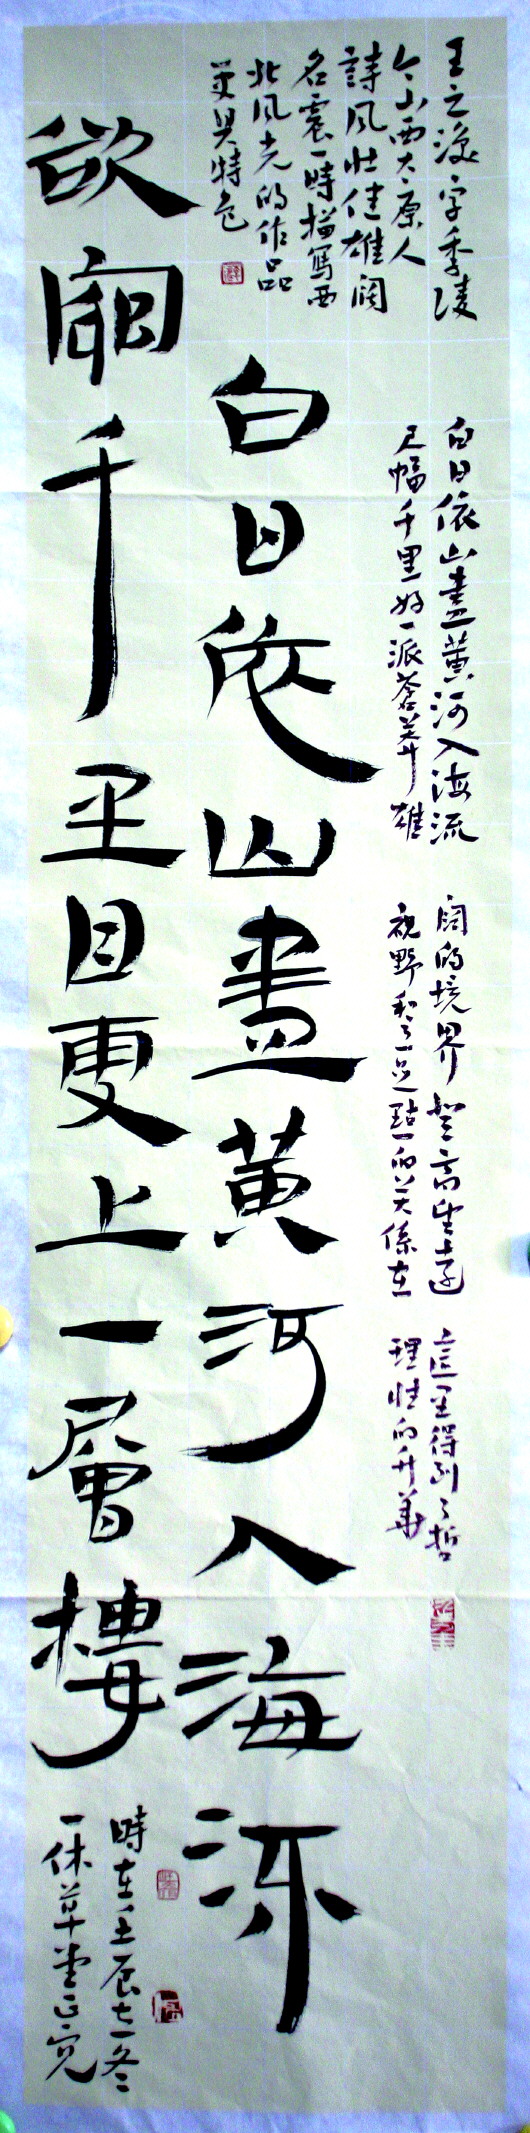 王之渙字季陵
今山西太原人
詩風壯佳雄闊
名震一時描寫西
北風光的作品
更具特色
白日依山盡黄河入海流
尺幅千里好一派蒼莽雄
闊的境界登高望遠
視野和立足點的关係在
這里得到了哲
理性的升華
白日依山盡黄河入海流
欲窮千里目更上一層樓
時在壬辰之冬
一休草堂正完